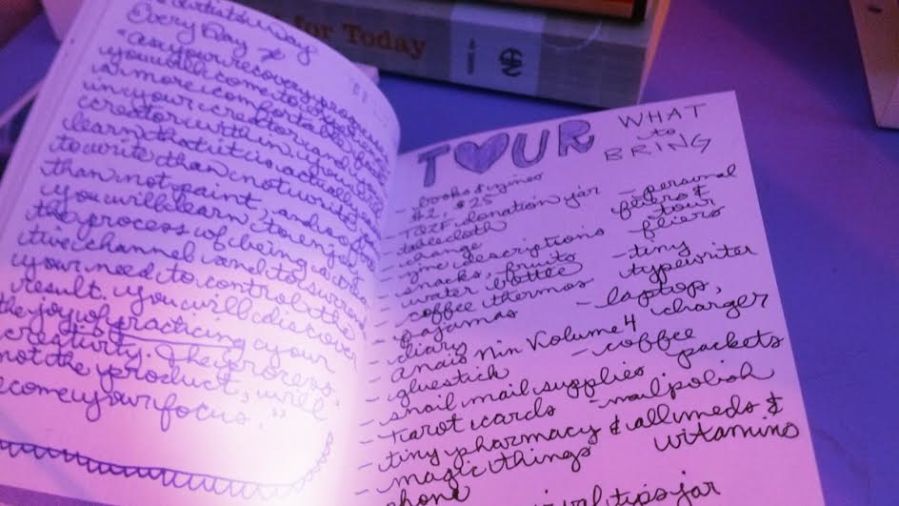 for Today
Artist's Way
Every Day
"as your recovery progresses,
you will come to experience
a more comfortable faith
in your creator and the
creator within you. you'll
learn that it is actually easier
to write than not write, paint
than not paint, and so forth.
you will learn to enjoy
the process of being a
creative channel and to surrender
your need to control the
result. you will discover
the joy of practicing your
creativity. The process,
not the product, will
become your focus."
TOUR
WHAT
to
BRING
- books & zines
$2, $25
- TGZF donation jar
- tablecloth
- change
- zine descriptions
- snacks, fruits
- water bottle
- coffee thermos
- pajamas
- diary
- anais nin Volume 4
- gluestick
- snail mail supplies
- tarot cards
- tiny pharmacy & all meds &
vitamins
- magic things
phone
- personal
fliers &
tour
fliers
- tiny
typewriter
- laptop,
charger
- coffee
packets
- nail polish
tips jar